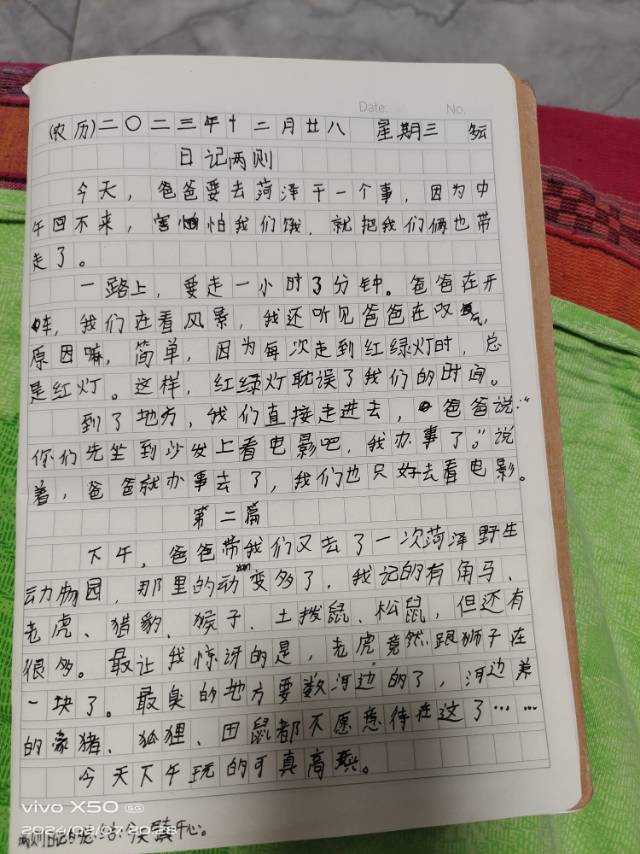 Date: No.
(农历)二〇二三年十二月廿八 星期三
日记两则
今天，爸爸要去菏泽干一个事，因为中
午回不来，害怕我们饿．就把我们俩也带
走了。
一路上，要走一小时3分钟。爸爸在开
我们在看风景，我还听见爸爸在叹气，
原因嘛，简单，因为每次走到红绿灯时，总
是红灯。这样，红绿灯耽误了我们的时间。
到了地方，我们直接走进去，爸爸说："
你们先坐到沙发上看电影吧，我办事了。"说
着，爸爸就办事去了，我们也只好去看电影。
第二篇
下午，爸爸带我们又去了一次菏泽野生
动物园，那里的动物变多了．我记的有角马、
老虎、猎豹、猴子、土拨鼠、松鼠，但还有
很多。最让我惊讶的是，老虎竟然跟狮子在
一块了。最臭的地方要数河边的了，河边养
的豪猪、狐狸、田鼠都不愿意待在这了……
今天下午玩的可真高兴。
vivo X50 5G
2024/03/07 20:28